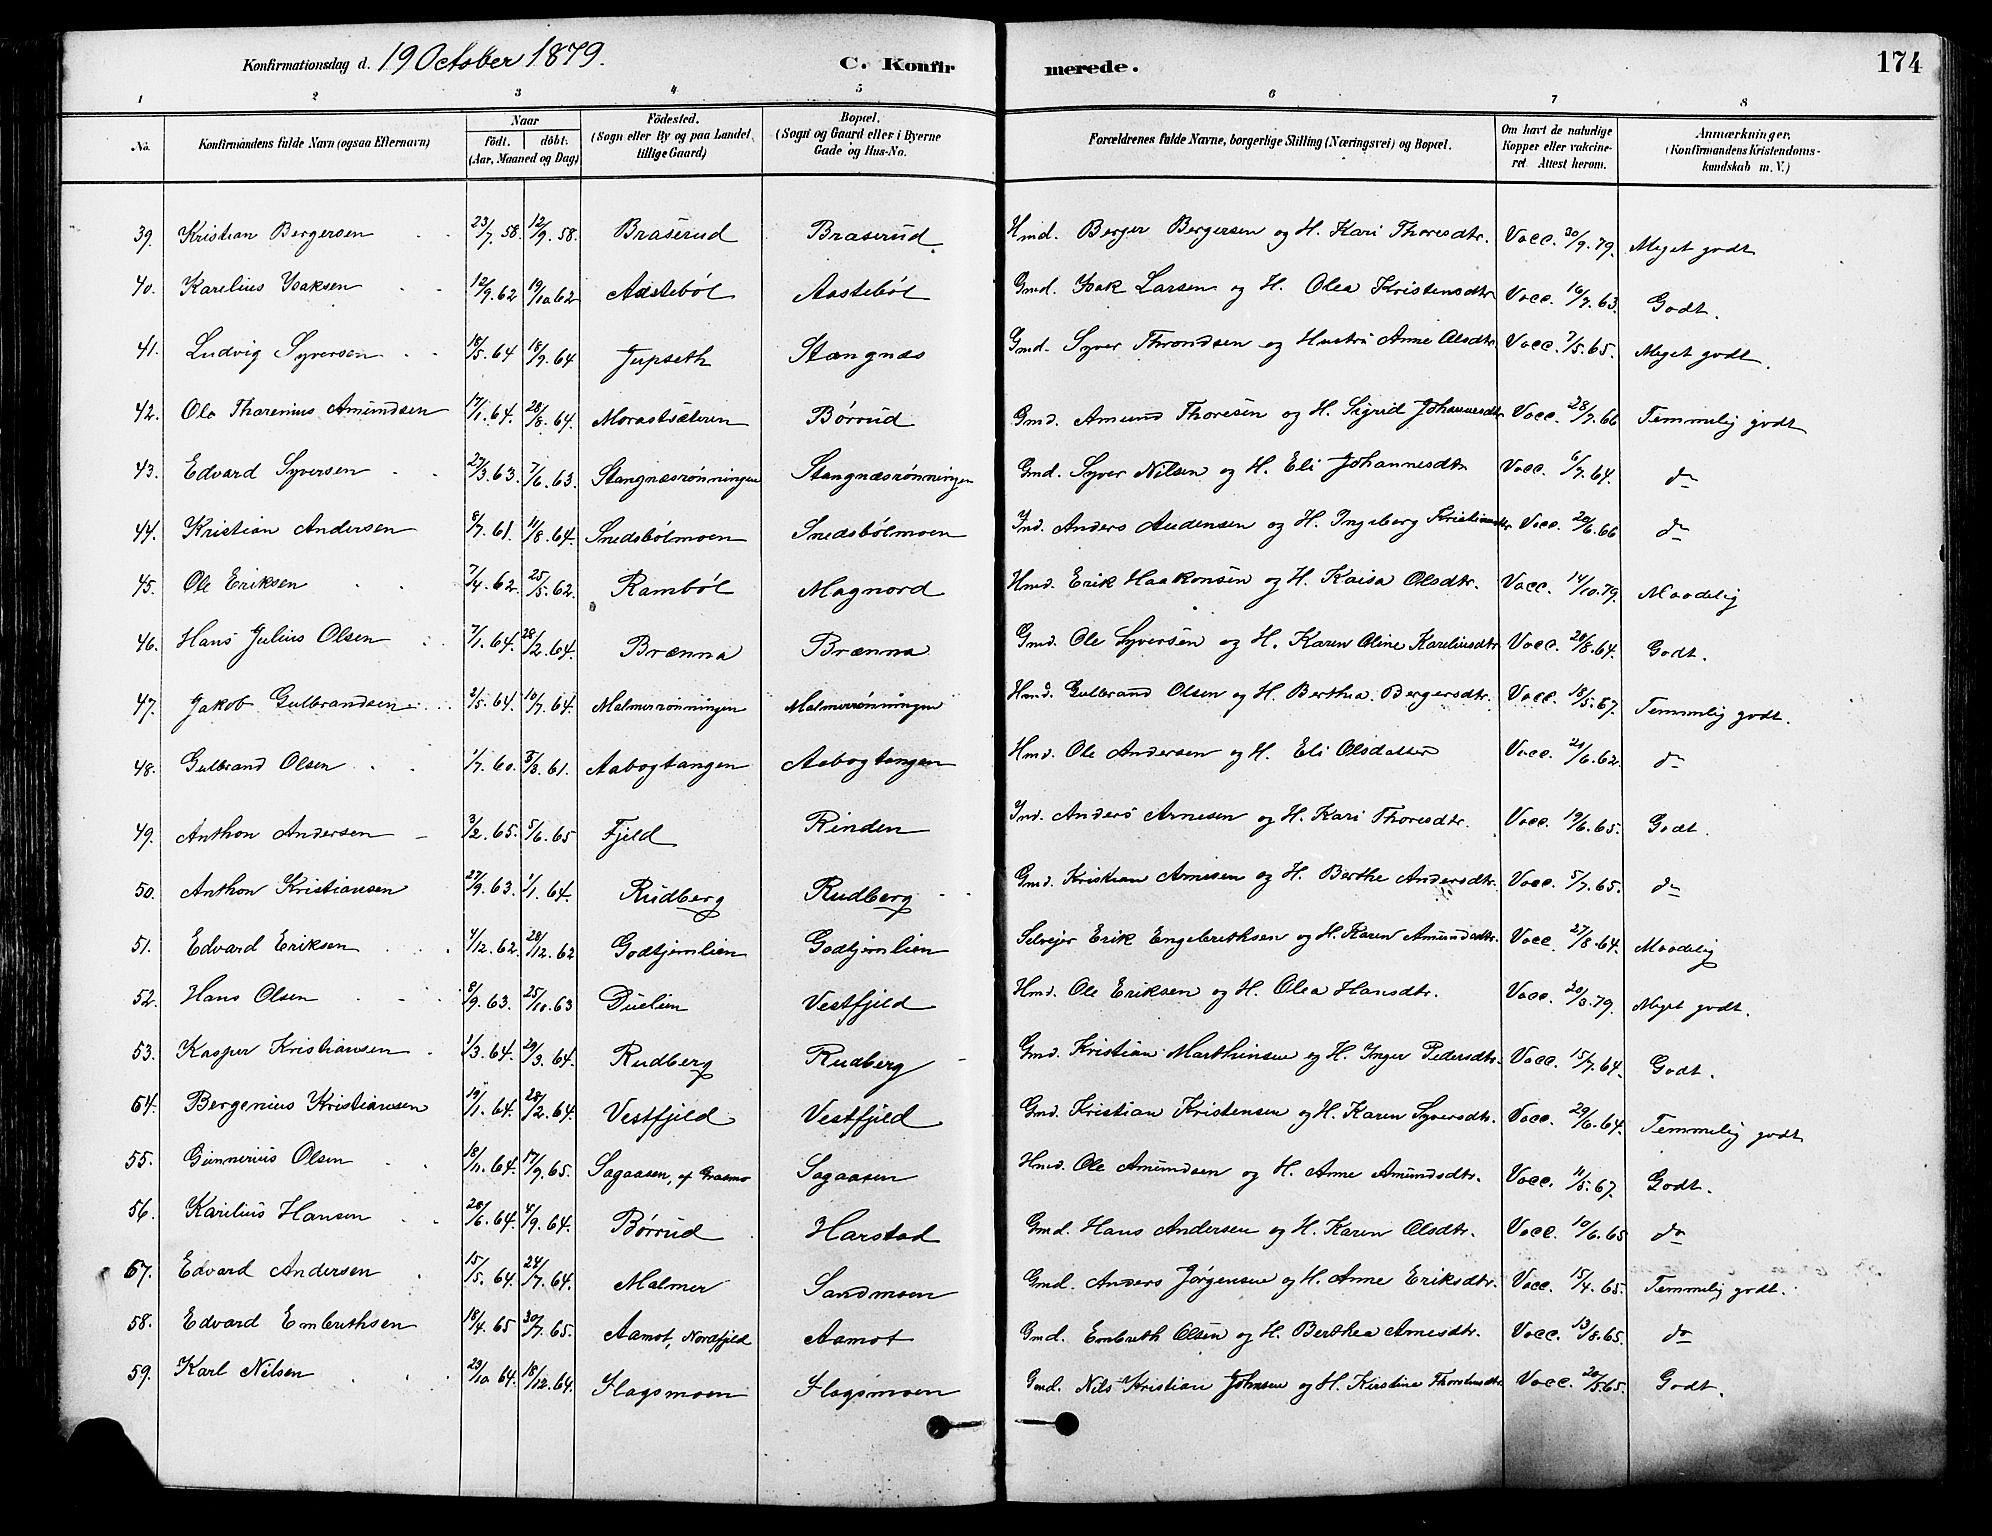 Konfirmationsdag d. 19 October 1879. C. Konfirmerede. 174
1 2 3 4 5 6 7 8
No. Konfirmandens fulde Navn (ogsaa Efternavn) Naar födt. döbt. (Aar, Maaned og Dag) Födested. (Sogn eller By og paa Landet tillige Gaard) Bopæl. (Sogn og Gaard eller i Byerne Gade og Hus-No. Forældrenes fulde Navne, borgerlige Stilling (Næringsvei) og Bopæl. Om havt de naturlige Kopper eller vakcineret. Attest herom. Anmærkninger, (Konfirmandens Kristendomskundskab m. V.)
39. Kristian Bergersen 23/7.58. 12/9.58. Braserud Braserud Hmd. Berger Bergersen og H. Kari Thoresdtr. Vacc. 30/9.79. Meget godt
40. Karelius Isaksen 12/9.62 19/10 62 Aastebøl Aastebøl Gmd. Isak Larsen og H. Olea Kristensdtr Vacc. 16/7.63. Godt.
41. Ludvig Syversen 18/5.64 18/9.64 Jupseth Stangnæs Gmd. Syver Throndsen og Hustru Anne Olsdtr Vacc. 7/5.65. Meget godt.
42. Ole Tharenius Amundsen 17/1.64. 28/8.64. Morastsæteren Børrud Gmd. Amund Thoresen og H. Sigrid Johannesdtr Vacc. 28/7.66 Temmelig godt
43. Edvard Syversen 27/3.63. 7/6.63. Stangnæsrønningen Stangnæsrønningen Gmd. Syver Nilsen og H. Eli Johannesdtr Vacc. 6/7.64. do
44. Kristian Andersen 8/7.61. 11/8.64. Snedsbølmoen Snedsbølmoen Ind. Anders Audensen og H. Ingeborg Kristiansdtr Vacc. 20/6.66 do
45. Ole Eriksen 7/4.62. 25/5.62. Rambøl Magnord Hmd. Erik Haakonsen og H. Kaisa Olsdtr. Vacc. 14/10.79. Maadelig
46. Hans Julius Olsen 7/1.64. 28/2.64. Brænna Brænna Gmd. Ole Syversen og H. Karen Oline Kareliusdtr Vacc. 20/8.64. Godt.
47. Jakob Gulbrandsen 3/5.64. 10/7.64. Malmerrønningen Malmerrønningen Hmd. Gulbrand Olsen og H. Berthea Bergersdtr. Vacc. 18/5.67. Temmelig godt.
48. Gulbrand Olsen 1/7.60. 3/3.61. Aabogtangen Aabogtangen Hmd. Ole Andersen og H. Eli Olsdatter Vacc. 21/6.62. do
49. Anthon Andersen 3/2.65. 5/6.65 Fjeld Rinden Ind. Anders Arnesen og H. Kari Thoresdtr. Vacc. 19/6.65. Godt.
50. Anthon Kristiansen 27/9.63. 1/1.64. Rudberg Rudberg Gmd. Kristian Arnesen og H. Berthe Andersdtr. Vacc. 5/7.65. do
51. Edvard Eriksen 4/12.62. 28/12.62 Godtjernlien Godtjernlien Selvejer Erik Engebrethsen og H. Karen Amundsdtr. Vacc. 27/8.64. Maadelig
52. Hans Olsen 8/9.63. 25/10.63 Duelien Vestfjeld Hmd. Ole Eriksen og H. Olea Hansdtr. Vacc. 20/3.79. Meget godt.
53. Kasper Kristiansen 1/3.64. 29/3.64. Rudberg Rudberg Gmd. Kristian Marthinsen og H. Inger Pedersdtr. Vacc. 15/7.64. Godt.
54. Bergenius Kristiansen 19/1.64. 28/2.64. Vestfjeld Vestfjeld Gmd. Kristian Kristensen og H. Karen Syversdtr. Vacc. 29/6.64. Temmelig godt
55. Gunnerius Olsen 18/11.64. 17/9.65. Sagaasen, af Grasmo Sagaasen Hmd. Ole Amundsen og H. Anne Amundsdtr. Vacc. 11/5.67. Godt.
56. Karelius Hansen 28/6.64. 4/9.64. Børrud Harstad Gmd. Hans Andersen og H. Karen Olsdtr. Vacc. 10/6.65 do
57. Edvard Andersen 15/5.64. 24/7.64. Malmer Sandmoen Gmd. Anders Jørgensen og H. Anne Eriksdtr. Vacc. 15/4.65. Temmelig godt.
58. Edvard Embrethsen 18/4.65 30/7.65. Aamot, Nordfjeld Aamot Gmd. Embreth Olsen og H. Berthea Arnesdtr. Vacc. 13/8.65. do
59. Karl Nilsen 23/10 64. 18/12.64. Flagsmoen Flagsmoen Gmd. Nils Kristian Johnsen og H. Kirstine Vacc. 20/5.65. Godt.